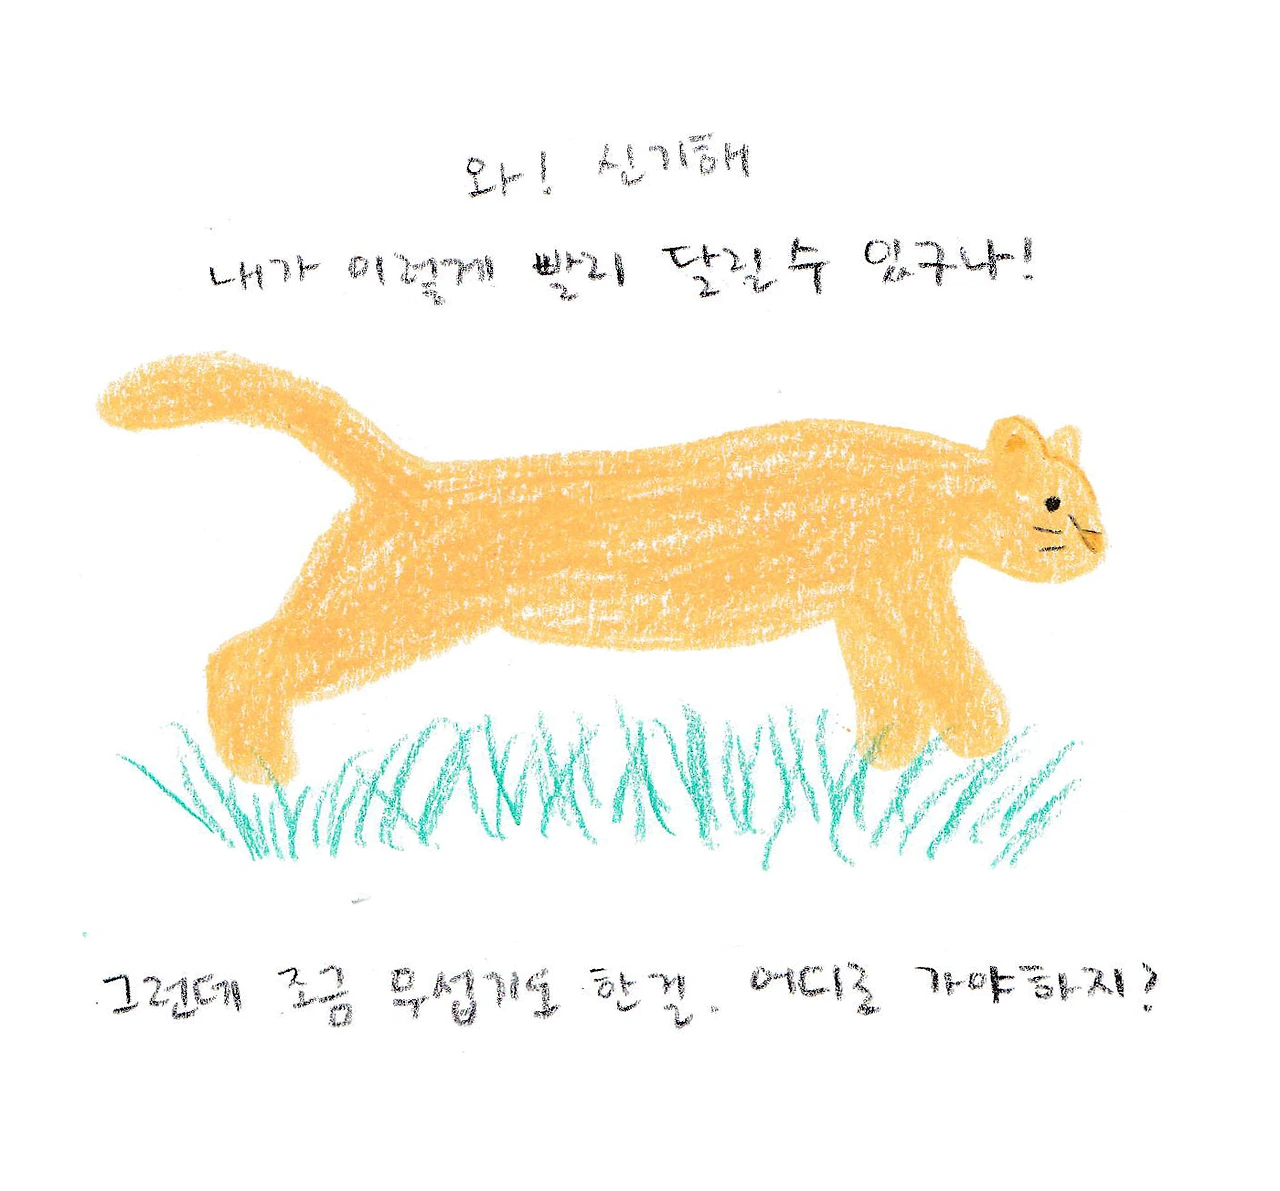 와! 신기해
내가 이렇게 빨리 달릴수 있구나!
그런데 조금 무섭기도 한걸. 어디로 가야하지?